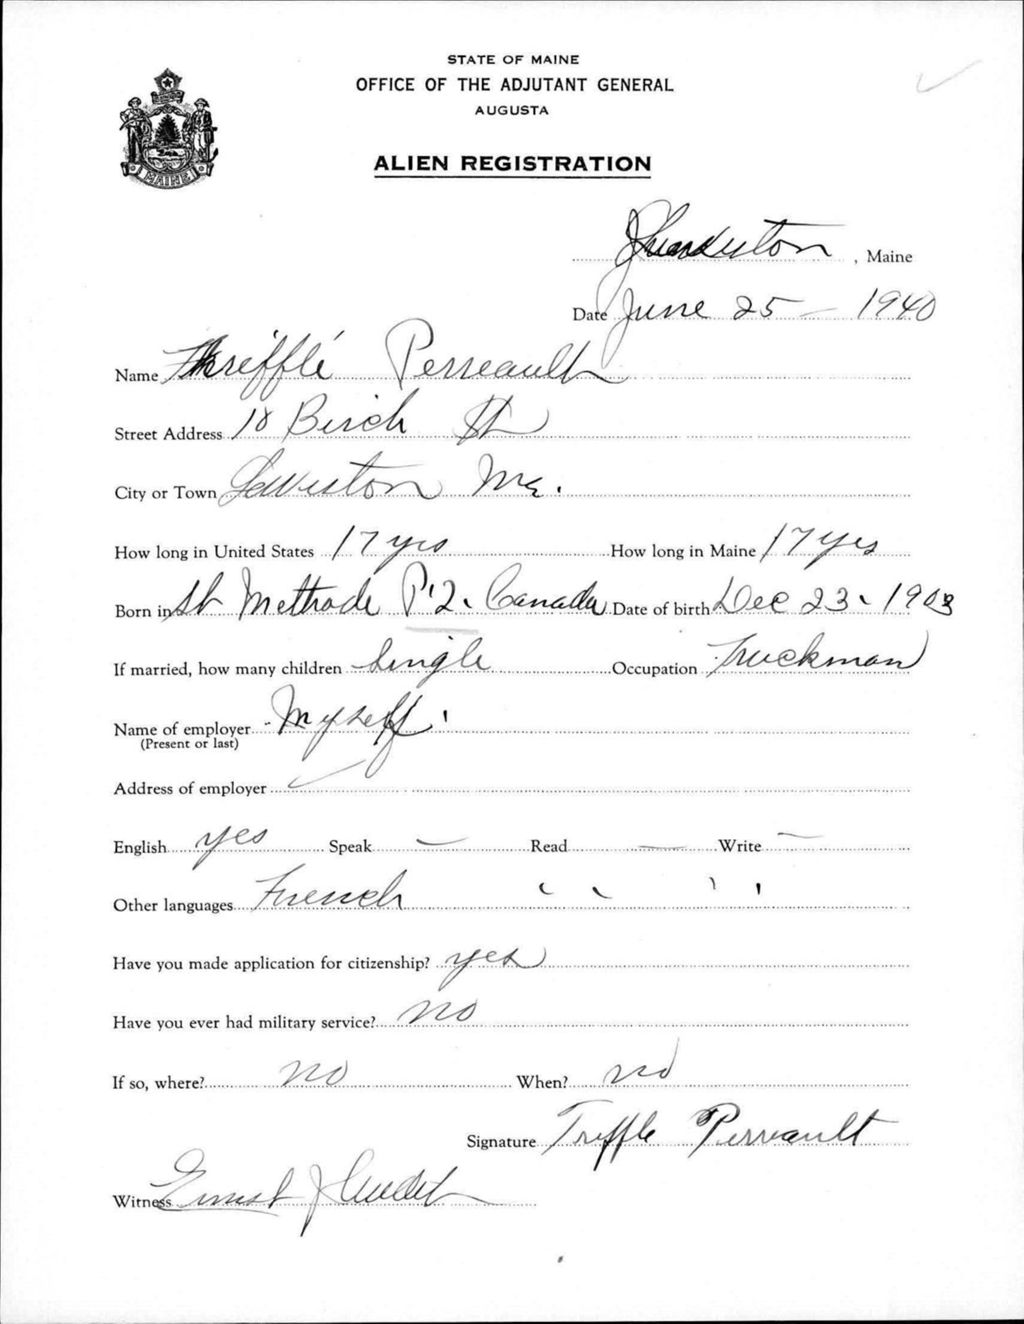 STATE OF MAINE
OFFICE OF THE ADJUTANT GENERAL
AUGUSTA
MAINE
ALIEN REGISTRATION
, Maine
Date June 25 - 1940
Name Thriffle Perreault
Street Address 18 Birch St
City or Town Lewiston Me.
How long in United States 17 yrs How long in Maine 17 yrs
Born in St Methode P.2. Canada Date of birth Dec 23. 1903
If married, how many children Single Occupation Truckman
Name of employer - Myself
(Present or last)
Address of employer
English yes Speak — Read — Write —
Other languages French
Have you made application for citizenship? yes
Have you ever had military service? no
If so, where? no When? no
Signature Triffle Perreault
Witness Ernest J